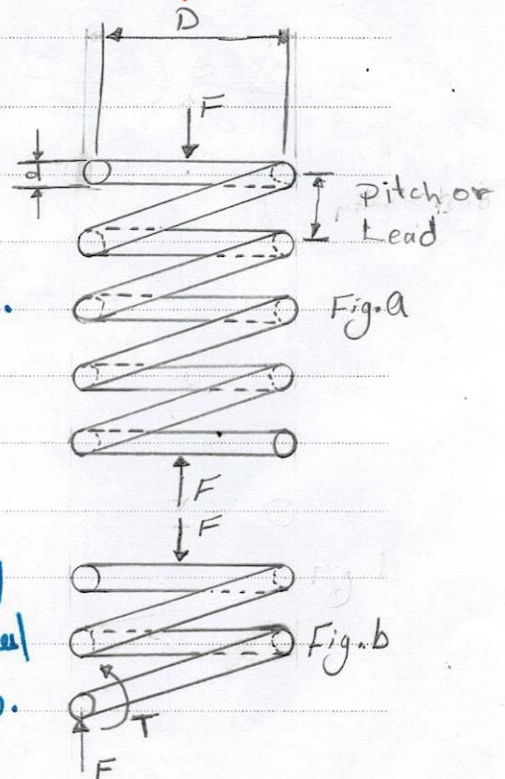 D
F
d
pitch or
Lead
Fig.a
F
F
Fig.b
T
F